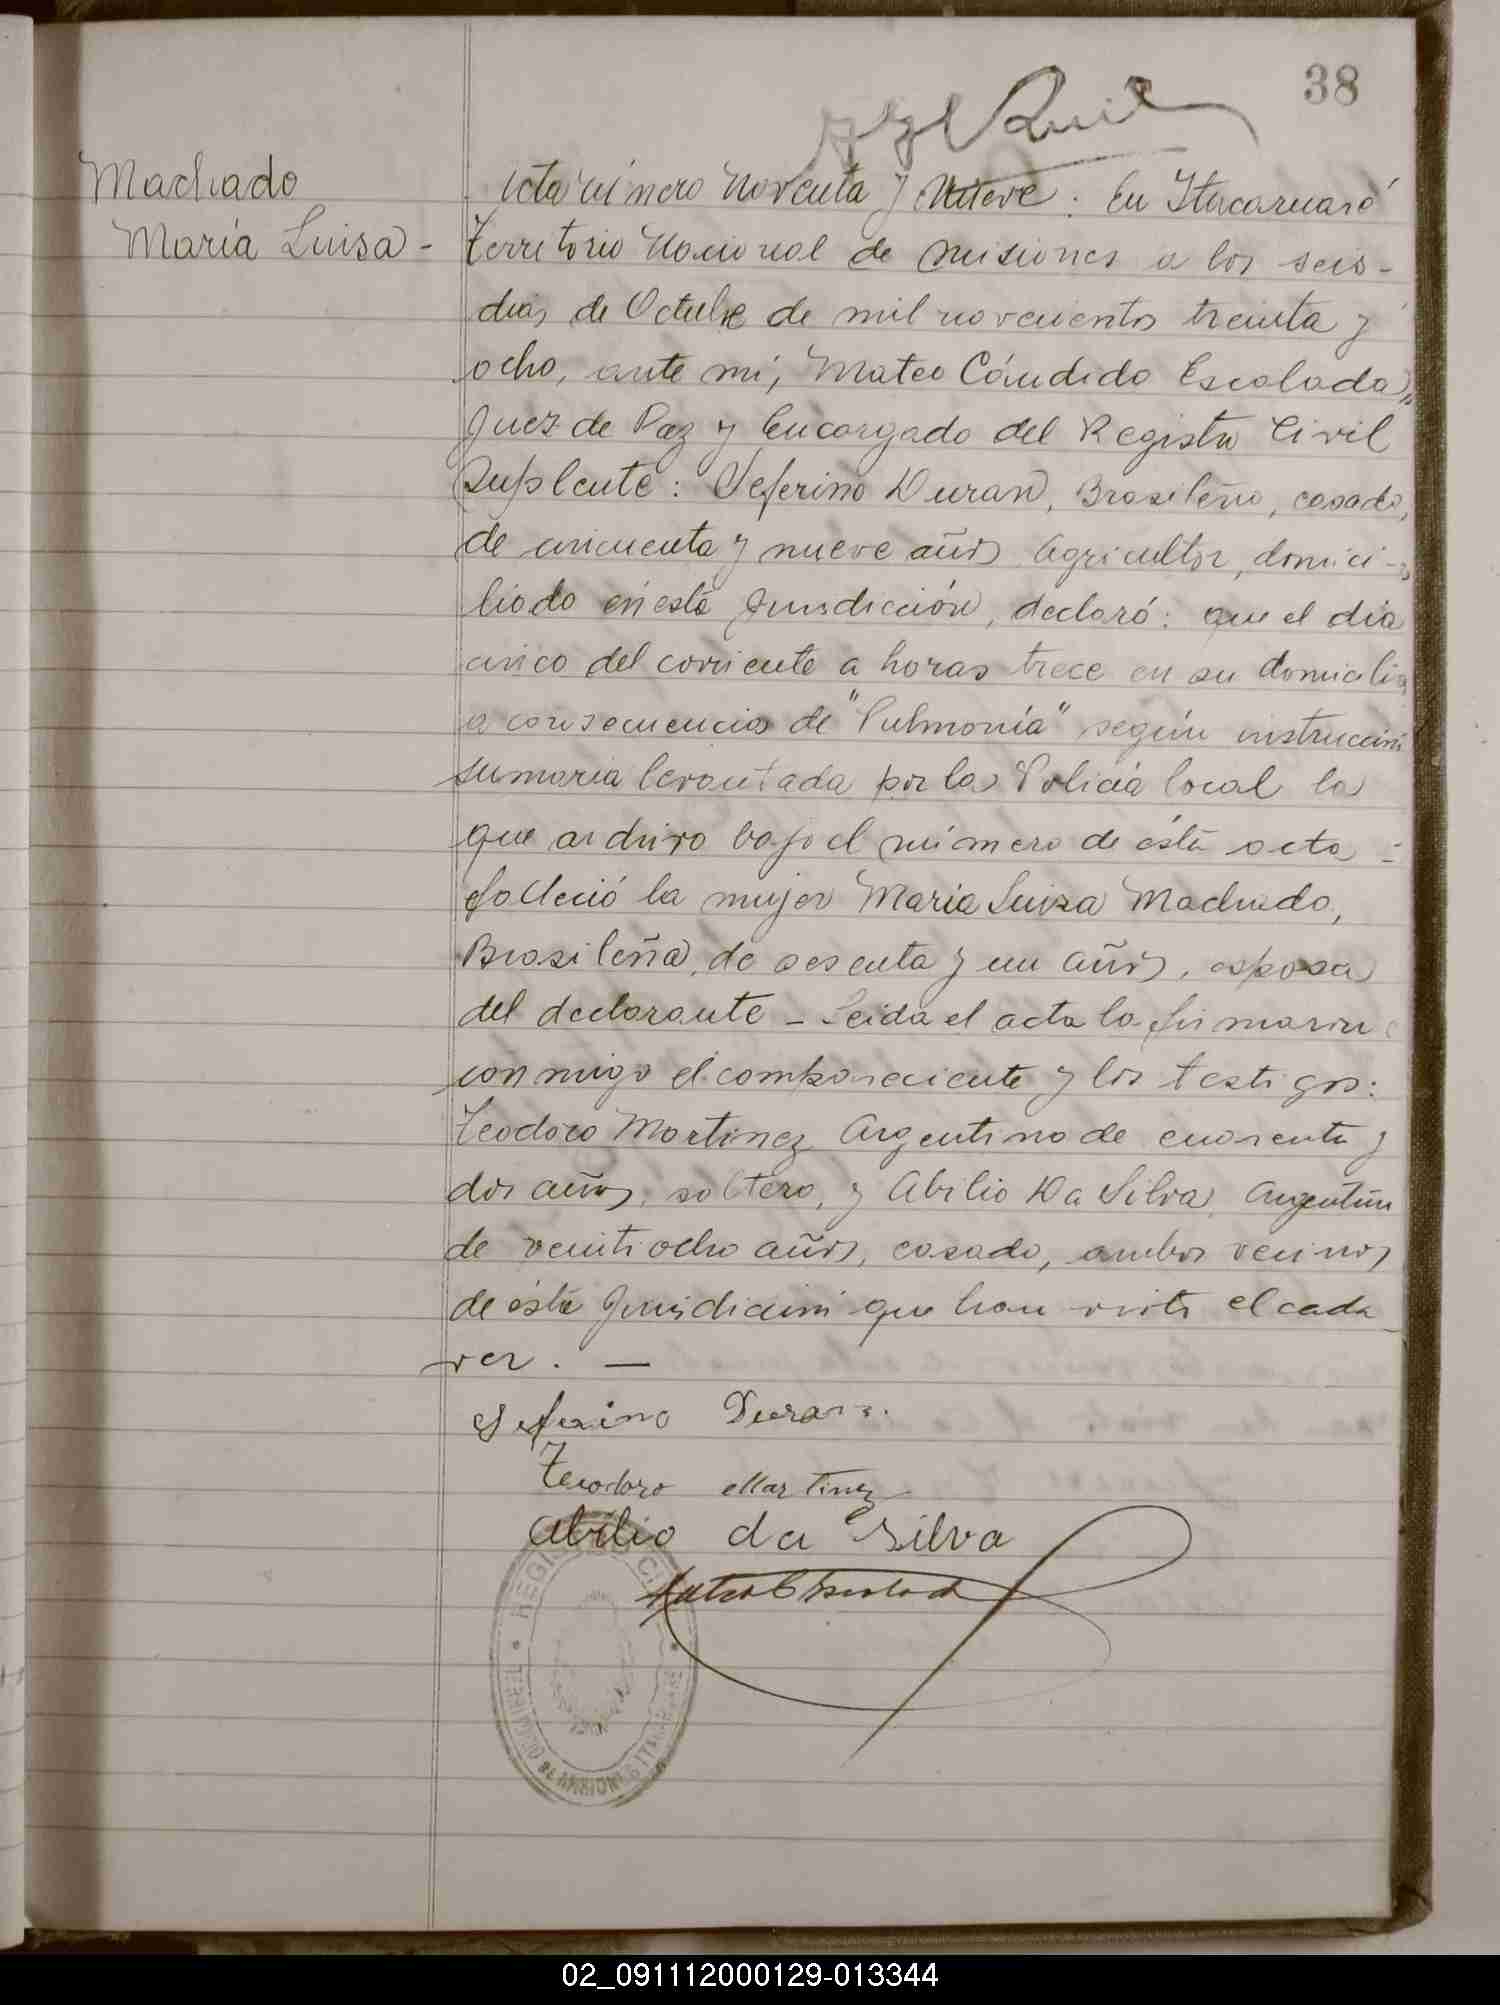 38
Machado
María Luisa -
Acta número Noventa y Nueve : En Itacaruaré
Territorio Nacional de Misiones a los seis -
dias de Octubre de mil novecientos treinta y
ocho, ante mi, Mateo Cándido Escalada,
Juez de Paz y Encargado del Registro Civil
Suplente : Seferino Duran, Brasileño, casado,
de cincuenta y nueve años Agricultor, domici-
liado en está Jurisdicción, declaró : que el dia
cinco del corriente a horas trece en su domicilio
a consecuencia de "Pulmonía" según instrucción
sumaria levantada por la Policia local la
que archivo bajo el número de ésta acta -
falleció la mujer Maria Luisa Machado,
Brasileña, de sesenta y un años, esposa
del declarante - Leida el acta la firmaron
conmigo el compareciente y los testigos :
Teodoro Martinez Argentino de cuarenta y
dos años, soltero, y Abilio Da Silva, Argentino
de veintiocho años, casado, ambos vecinos
de ésta Jurisdicción que han visto el cada
ver . —
Seferino Duran.
Teodoro Martinez
Abilio da Silva
Mateo C Escalada
REGISTRO CIVIL
TERRITORIO DE MISIONES ITACARUARE
02_091112000129-013344